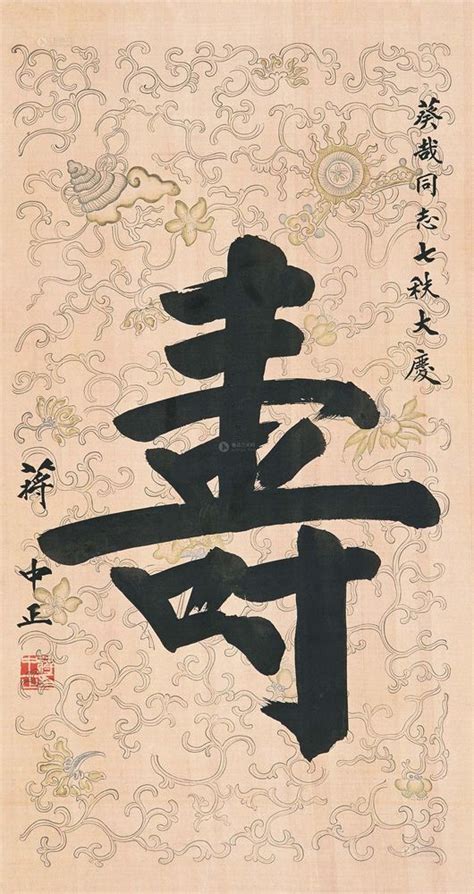 葵哉同志七秩大慶
壽
蔣中正